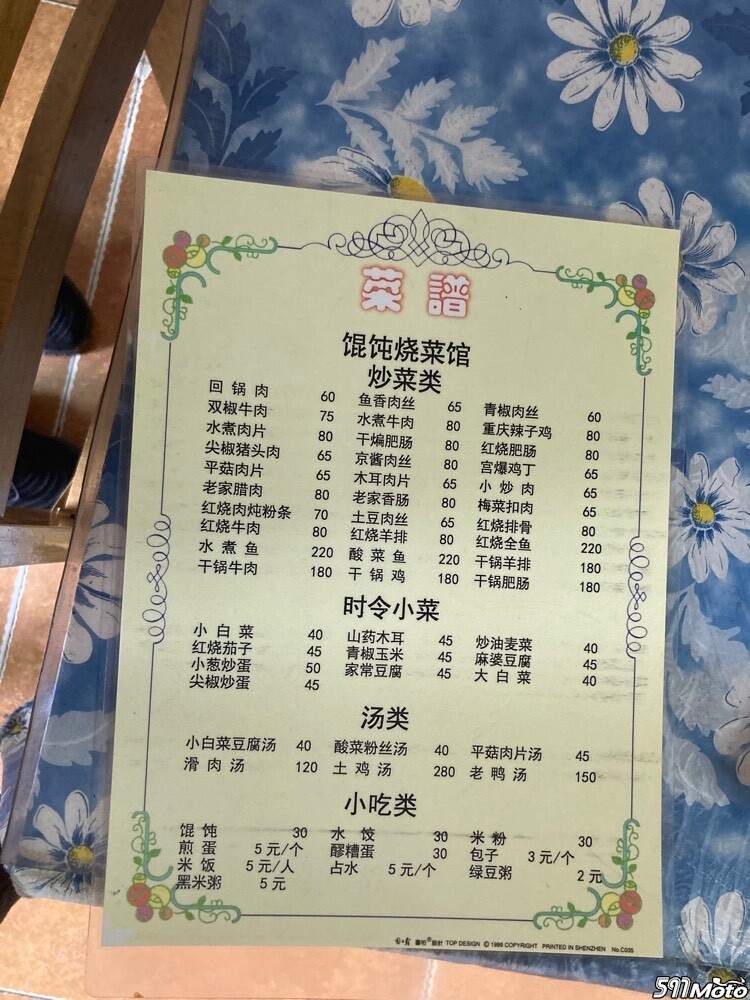 菜譜
馄饨烧菜馆
炒菜类
回锅肉 60 鱼香肉丝 65 青椒肉丝 60
双椒牛肉 75 水煮牛肉 80 重庆辣子鸡 80
水煮肉片 80 干煸肥肠 80 红烧肥肠 80
尖椒猪头肉 65 京酱肉丝 80 宫爆鸡丁 65
平菇肉片 65 木耳肉片 65 小炒肉 65
老家腊肉 80 老家香肠 80 梅菜扣肉 65
红烧肉炖粉条 70 土豆肉丝 65 红烧排骨 80
红烧牛肉 80 红烧羊排 80 红烧全鱼 220
水煮鱼 220 酸菜鱼 220 干锅羊排 180
干锅牛肉 180 干锅鸡 180 干锅肥肠 180
时令小菜
小白菜 40 山药木耳 45 炒油麦菜 40
红烧茄子 45 青椒玉米 45 麻婆豆腐 45
小葱炒蛋 50 家常豆腐 45 大白菜 40
尖椒炒蛋 45
汤类
小白菜豆腐汤 40 酸菜粉丝汤 40 平菇肉片汤 45
滑肉汤 120 土鸡汤 280 老鸭汤 150
小吃类
馄饨 30 水饺 30 米粉 30
煎蛋 5元/个 醪糟蛋 30 包子 3元/个
米饭 5元/人 占水 5元/个 绿豆粥 2元
黑米粥 5元
設計 TOP DESIGN © 1999 COPYRIGHT PRINTED IN SHENZHEN No.C035
591Moto